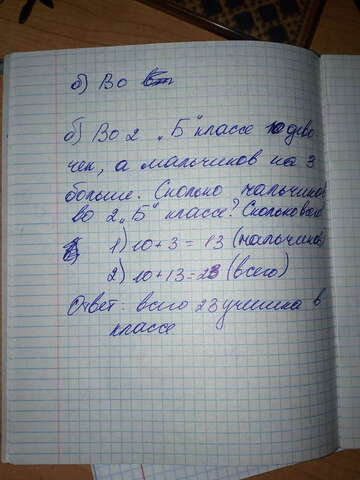 б) Во
б) Во 2 „Б" классе 10 дево
чек, а мальчиков на 3
больше. Сколько мальчиков
во 2 „Б" классе? Сколько всего
1) 10+3=13 (мальчиков)
2) 10+13=23 (всего)
Ответ: всего 23 ученика в
классе